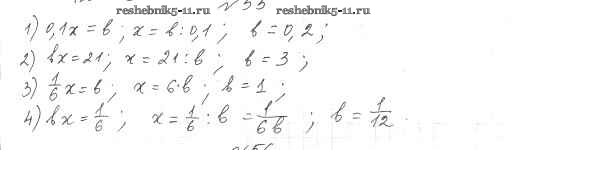 № 55
www.reshebnik5-11.ru www.reshebnik5-11.ru
1) 0,1x = b ; x = b : 0,1 ; b = 0,2 ;
2) bx = 21 ; x = 21 : b ; b = 3 ;
3) 1/6 x = b ; x = 6·b ; b = 1 ;
4) bx = 1/6 ; x = 1/6 : b = 1/6b ; b = 1/12 .